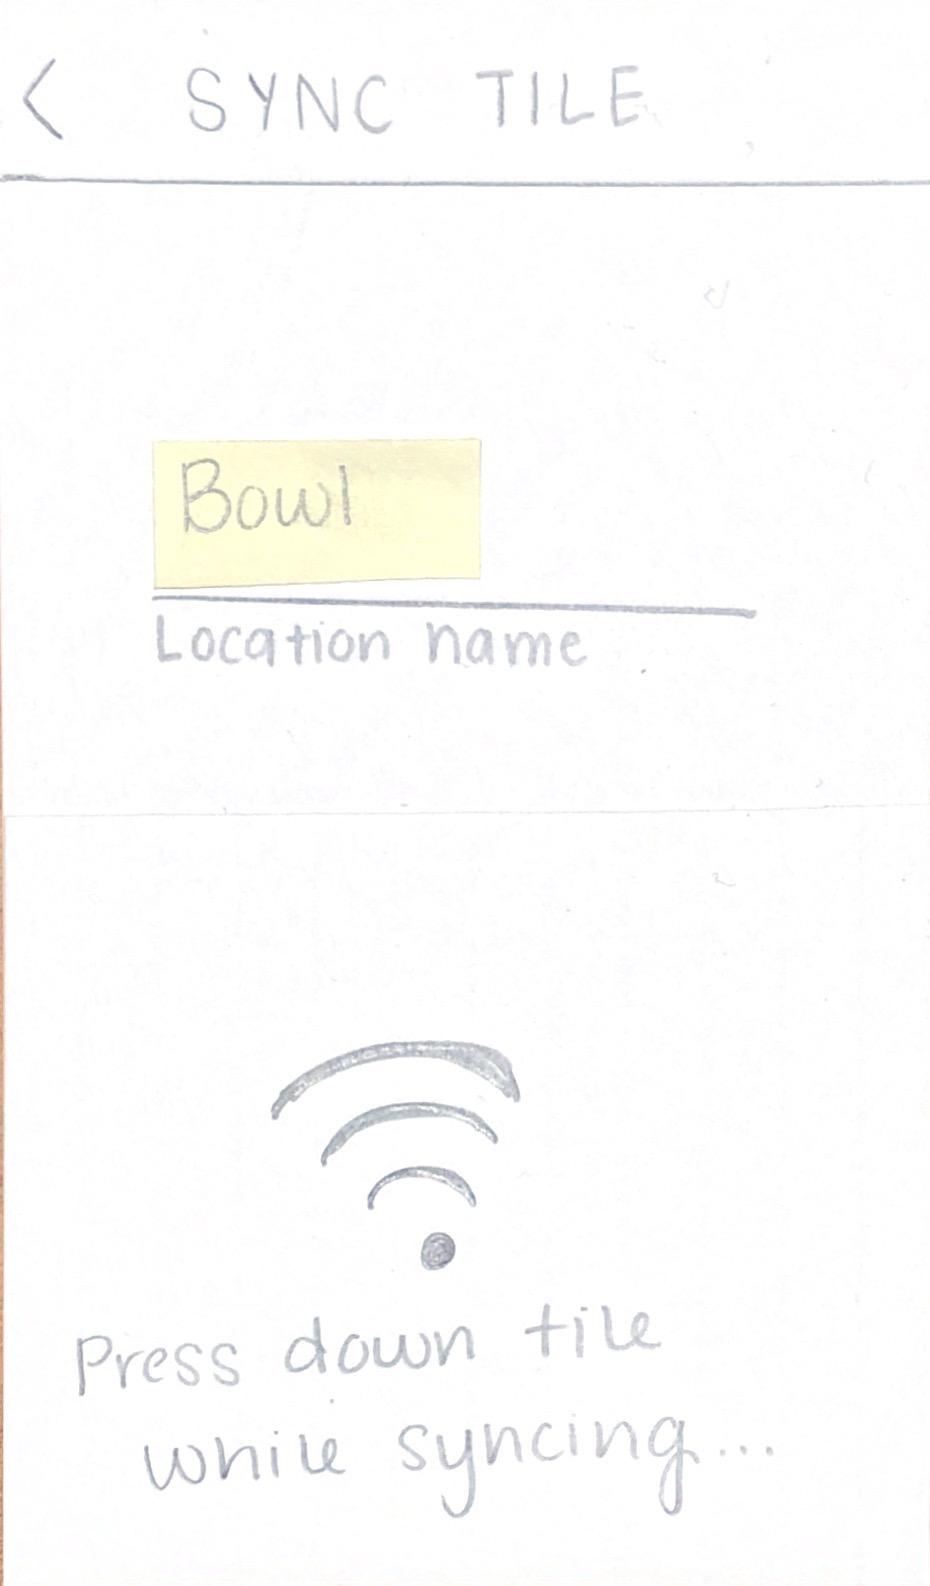 < SYNC TILE
Bowl
Location name
Press down tile
while syncing...